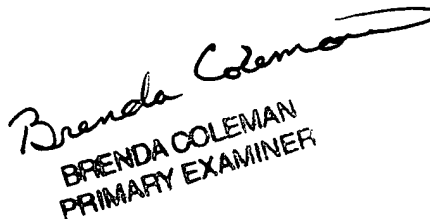 Brenda Coleman
BRENDA COLEMAN
PRIMARY EXAMINER